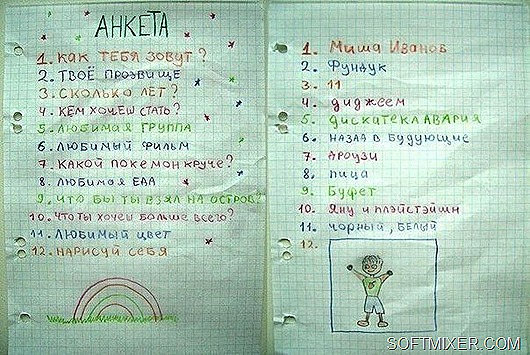 АНКЕТА
1. КАК ТЕБЯ ЗОВУТ?
2. ТВОЁ ПРОЗВИЩЕ
3. СКОЛЬКО ЛЕТ?
4. КЕМ ХОЧЕШ СТАТЬ?
5. ЛЮБИМАЯ ГРУППА
6. ЛЮБИМЫЙ ФИЛЬМ
7. КАКОЙ ПОКЕМОН КРУЧЕ?
8. ЛЮБИМАЯ ЕДА
9. ЧТО БЫ ТЫ ВЗЯЛ НА ОСТРОВ?
10. ЧТО ТЫ ХОЧЕШ БОЛЬШЕ ВСЕГО?
11. ЛЮБИМЫЙ ЦВЕТ
12. НАРИСУЙ СЕБЯ
1. Миша Иванов
2. Фундук
3. 11
4. диджеем
5. ДИСКАТЕКЛАВАРИЯ
6. НАЗАД В БУДУЮЩИЕ
7. ДРОУЗИ
8. пица
9. Буфет
10. Яну и плэйстэйшн
11. ЧОРНЫЙ, БЕЛЫЙ
12.
SOFTMIXER.COM